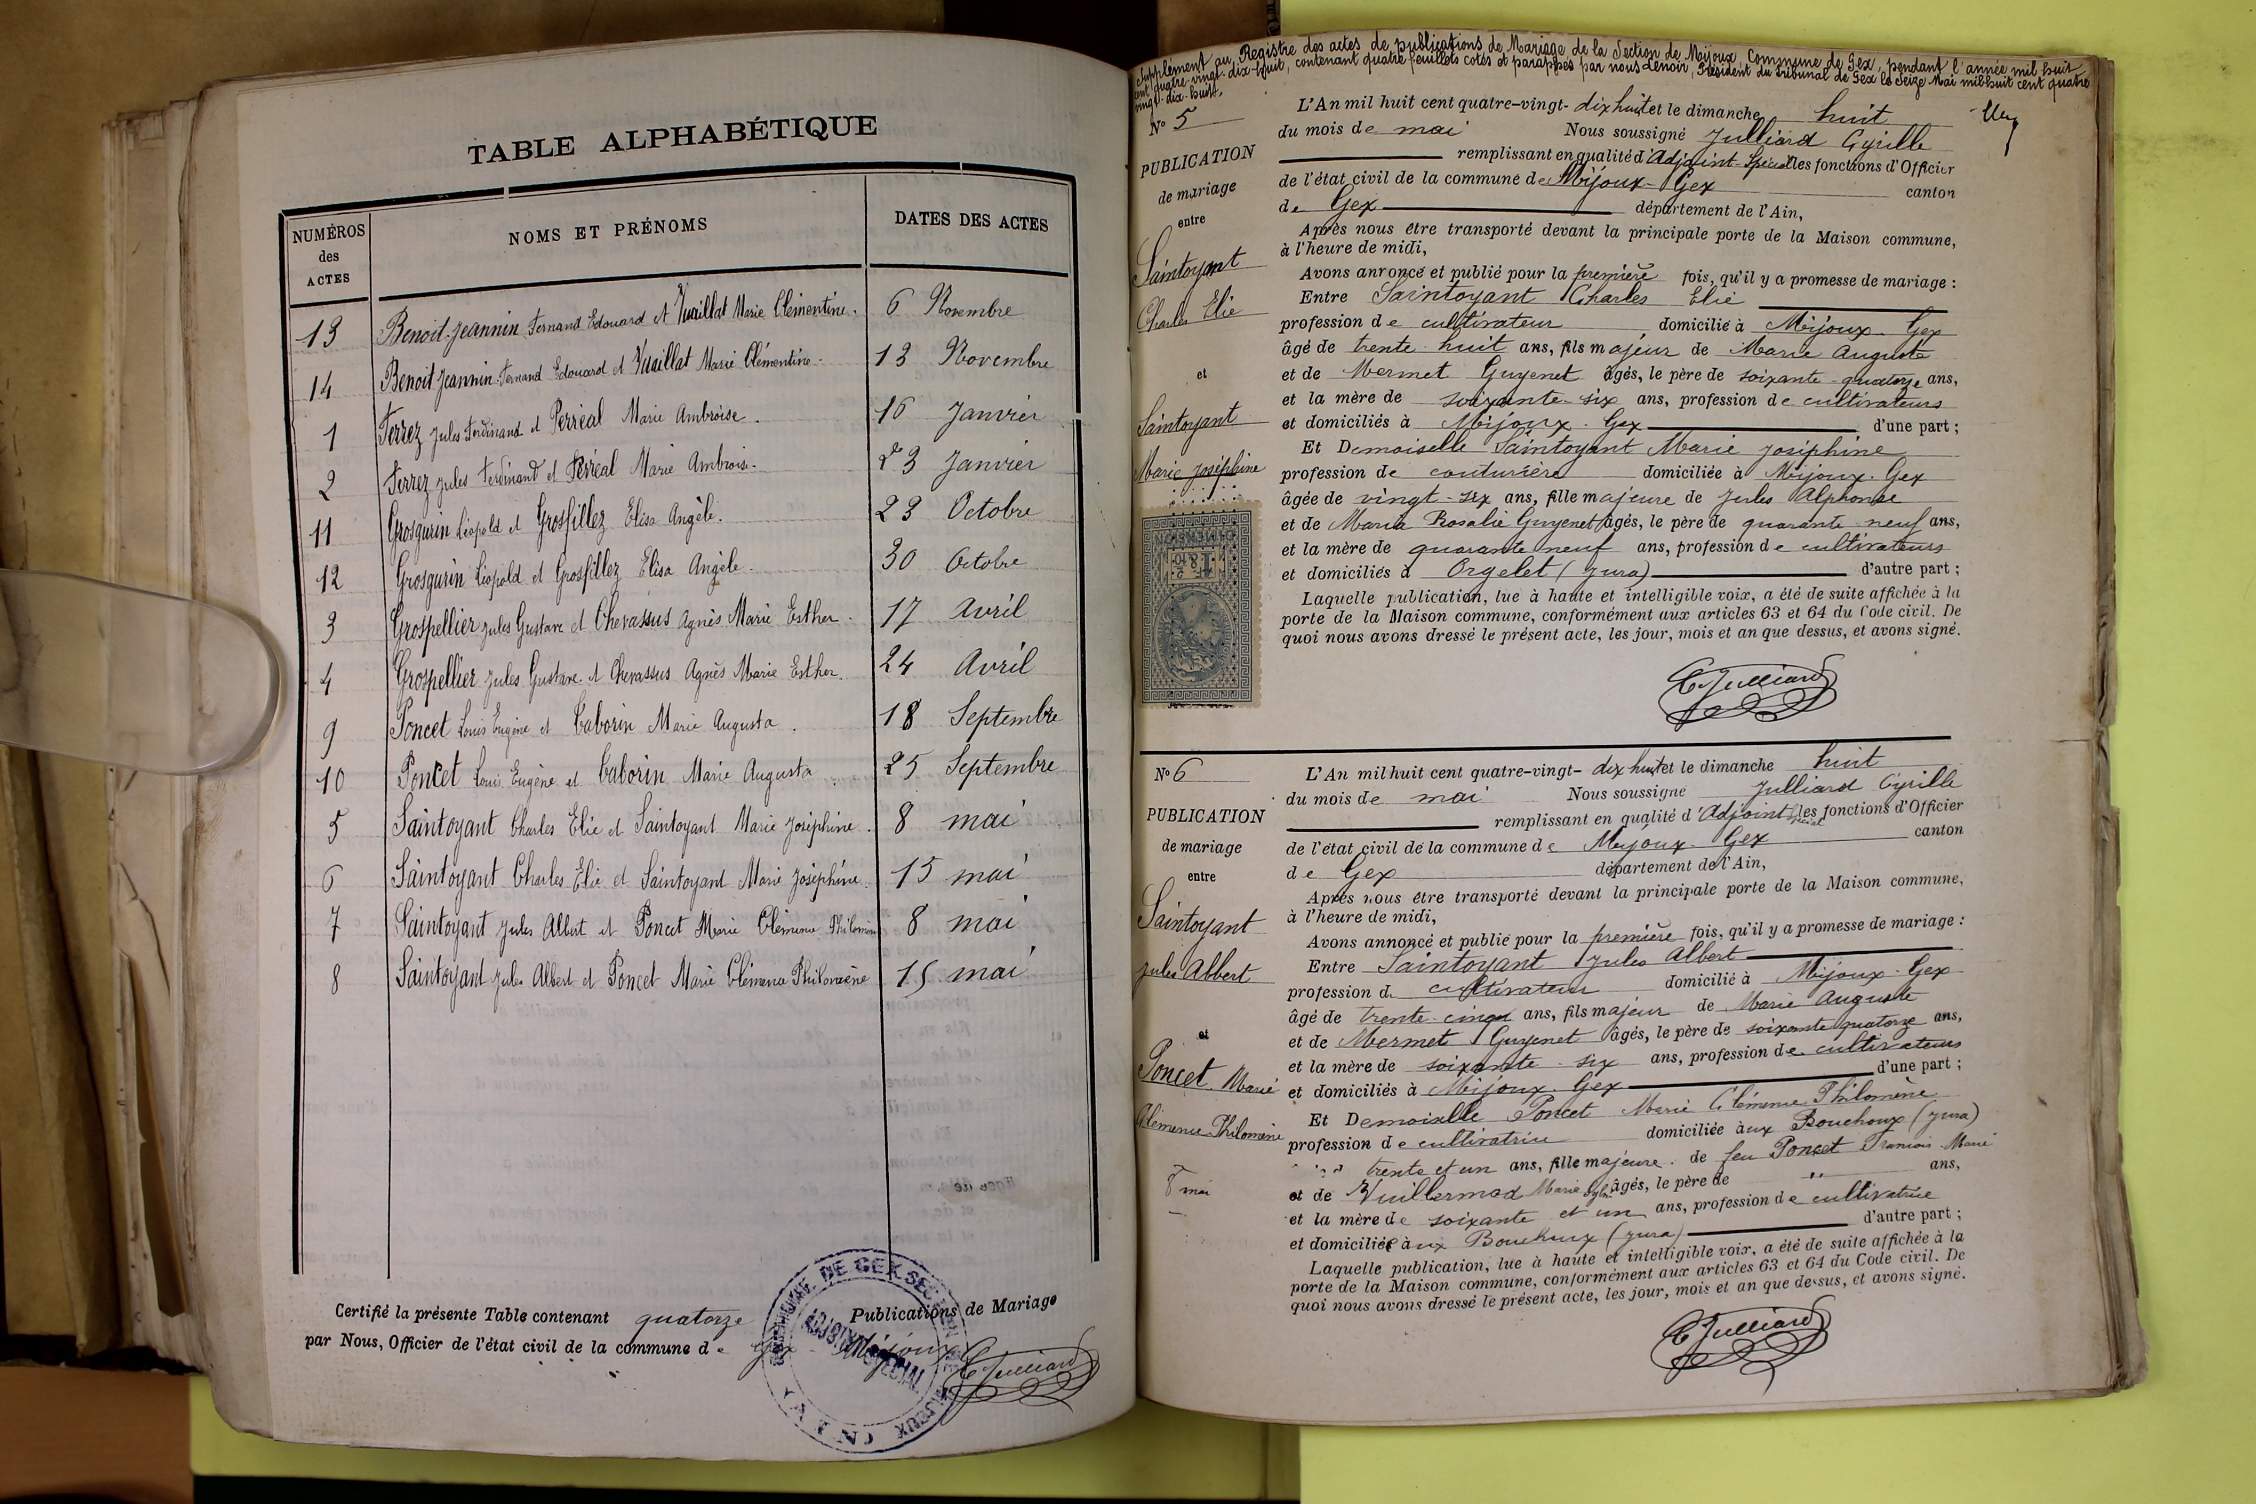 TABLE ALPHABÉTIQUE
NUMÉROS des ACTES
NOMS ET PRÉNOMS
DATES DES ACTES
13 Benoit-Jeannin Fernand Edouard et Vuaillat Marie Clémentine. 6 Novembre
14 Benoit Jeannin Fernand Edouard et Vuaillat Marie Clémentine. 13 Novembre
1 Ferrez Jules Ferdinand et Perréal Marie Ambroise. 16 Janvier
2 Ferrez Jules Ferdinand et Perréal Marie Ambroise. 23 Janvier
11 Grosgurin Léopold et Grosfillez Elisa Angèle. 23 Octobre
12 Grosgurin Léopold et Grosfillez Elisa Angèle. 30 Octobre
3 Grospellier Jules Gustave et Chevassus Agnès Marie Esther. 17 Avril
4 Grospellier Jules Gustave et Chevassus Agnès Marie Esther. 24 Avril
9 Poncet Louis Eugène et Caborin Marie Augusta. 18 Septembre
10 Poncet Louis Eugène et Caborin Marie Augusta 25 Septembre
5 Saintoyant Charles Elie et Saintoyant Marie Joséphine. 8 mai
6 Saintoyant Charles Elie et Saintoyant Marie Joséphine. 15 mai
7 Saintoyant Jules Albert et Poncet Marie Clémence Philomène 8 mai
8 Saintoyant Jules Albert et Poncet Marie Clémence Philomène 15 mai
Certifié la présente Table contenant quatorze Publications de Mariage
par Nous, Officier de l'état civil de la commune de Gex Mijoux
C. Julliard
COMMUNE DE GEX SECTION DE MIJOUX (AIN)
ADJOINT SPÉCIAL
Supplément au Registre des actes de publications de Mariage de la Section de Mijoux, Commune de Gex, pendant l'année mil huit
cent quatre-vingt-dix-huit, contenant quatre feuillets cotés et paraphés par nous Lenoir, Président du tribunal de Gex le Seize Mai mil huit cent quatre
vingt-dix-huit.
Un
N° 5
PUBLICATION
de mariage
entre
Saintoyant
Charles Elie
et
Saintoyant
Marie Joséphine
L'An mil huit cent quatre-vingt-dix huit et le dimanche huit
du mois de mai Nous soussigné Julliard Cyrille
remplissant en qualité d'Adjoint Spécial les fonctions d'Officier
de l'état civil de la commune de Mijoux-Gex canton
de Gex département de l'Ain,
Après nous être transporté devant la principale porte de la Maison commune,
à l'heure de midi,
Avons annoncé et publié pour la première fois, qu'il y a promesse de mariage :
Entre Saintoyant Charles Elie
profession de cultivateur domicilié à Mijoux-Gex
âgé de trente-huit ans, fils majeur de Marie Auguste
et de Mermet Guyenet âgés, le père de soixante-quatorze ans,
et la mère de soixante-six ans, profession de cultivateurs
et domiciliés à Mijoux-Gex d'une part ;
Et Demoiselle Saintoyant Marie Joséphine
profession de couturière domiciliée à Mijoux-Gex
âgée de vingt-six ans, fille majeure de Jules Alphonse
et de Maria Rosalie Guyenet âgés, le père de quarante-neuf ans,
et la mère de quarante neuf ans, profession de cultivateurs
et domiciliés à Orgelet (Jura) d'autre part ;
Laquelle publication, lue à haute et intelligible voix, a été de suite affichée à la
porte de la Maison commune, conformément aux articles 63 et 64 du Code civil. De
quoi nous avons dressé le présent acte, les jour, mois et an que dessus, et avons signé.
C. Julliard
N° 6
PUBLICATION
de mariage
entre
Saintoyant
Jules Albert
et
Poncet Marie
Clémence Philomène
8 mai
L'An mil huit cent quatre-vingt-dix huit et le dimanche huit
du mois de mai Nous soussigné Julliard Cyrille
remplissant en qualité d'Adjoint spécial les fonctions d'Officier
de l'état civil de la commune de Mijoux-Gex canton
de Gex département de l'Ain,
Après nous être transporté devant la principale porte de la Maison commune,
à l'heure de midi,
Avons annoncé et publié pour la première fois, qu'il y a promesse de mariage :
Entre Saintoyant Jules Albert
profession de cultivateur domicilié à Mijoux-Gex
âgé de trente-cinq ans, fils majeur de Marie Auguste
et de Mermet Guyenet âgés, le père de soixante quatorze ans,
et la mère de soixante-six ans, profession de cultivateurs
et domiciliés à Mijoux-Gex d'une part ;
Et Demoiselle Poncet Marie Clémence Philomène
profession de cultivatrice domiciliée aux Bouchoux (Jura)
trente et un ans, fille majeure de feu Poncet François Marie
et de Vuillermoz Marie âgés, le père de " ans,
et la mère de soixante et un ans, profession de cultivatrice
et domiciliée aux Bouchoux (Jura) d'autre part ;
Laquelle publication, lue à haute et intelligible voix, a été de suite affichée à la
porte de la Maison commune, conformément aux articles 63 et 64 du Code civil. De
quoi nous avons dressé le présent acte, les jour, mois et an que dessus, et avons signé.
C. Julliard